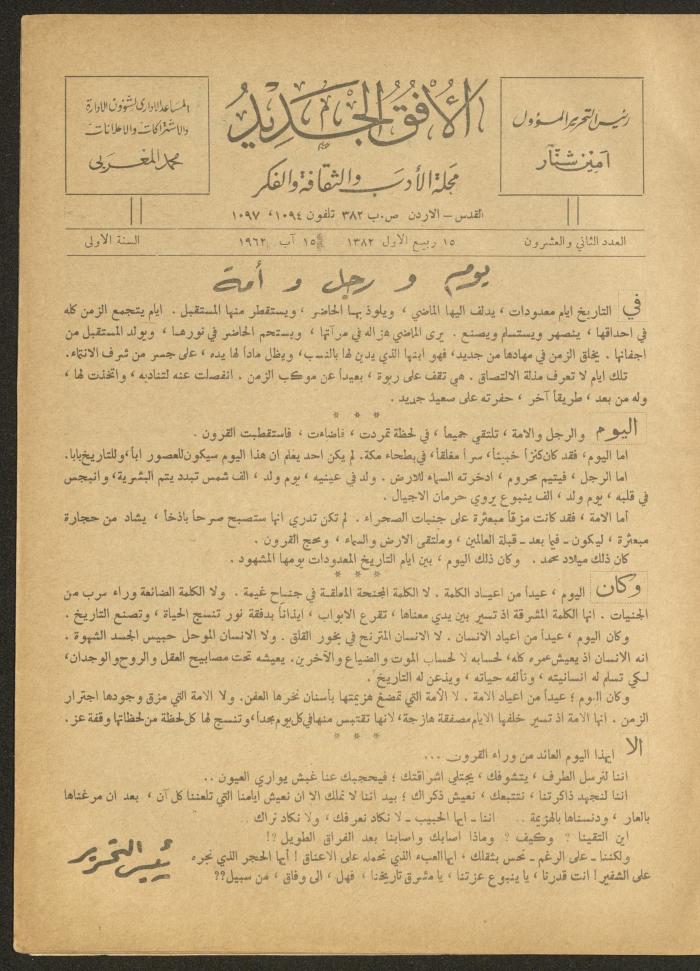 رئيس التحرير المسؤول
امين شنار
الأفق الجديد
مجلة الأدب والثقافة والفكر
المساعد الاداري لشؤون الادارة
والاشتراكات والاعلانات
محمد المغربي
القدس - الاردن ص.ب ٣٨٢ تلفون ١٠٩٤ ، ١٠٩٧
العدد الثاني والعشرون
١٥ ربيع الاول ١٣٨٢ ١٥ آب ١٩٦٢
السنة الاولى
يوم و رجل و أمة
في التاريخ ايام معدودات ، يدلف اليها الماضي ، ويلوذ بها الحاضر ، ويستقطر منها المستقبل . ايام يتجمع الزمن كله
في احداقها ، ينصهر ويستسلم ويصنع . يرى الماضي هزاله في مرآتها ، ويستحم الحاضر في نورها ، ويولد المستقبل من
اجفانها . يخلق الزمن في مهادها من جديد، فهو ابنها الذي يدين لها بالنسب، ويظل ماداً لها يده ، على جسر من شرف الانتماء.
تلك ايام لا تعرف مذلة الالتصاق . هي تقف على ربوة ، بعيداً عن موكب الزمن . انفصلت عنه لتناديه ، واتخذت لها ،
وله من بعد ، طريقاً آخر ، حفرته على صعيد جديد .
* * *
اليوم والرجل والامة ، تلتقي جميعاً ، في لحظة تمردت ، فاضاءت ، فاستقطبت القرون .
اما اليوم، فقد كان كنزاً خبيئاً، سراً مغلقاً، في بطحاء مكة. لم يكن احد يعلم ان هذا اليوم سيكون للعصور ابا، وللتاريخ بابا.
اما الرجل ، فيتيم محروم ، ادخرته السماء للارض . ولد في عينيه ، يوم ولد ، الف شمس تبدد يتم البشرية، وانبجس
في قلبه ، يوم ولد ، الف ينبوع يروي حرمان الاجيال .
أما الامة ، فقد كانت مزقاً مبعثرة على جنبات الصحراء . لم تكن تدري انها ستصبح صرحاً باذخاً ، يشاد من حجارة
مبعثرة ، ليكون - فيما بعد - قبلة العالمين ، وملتقى الارض والسماء ، ومحج القرون .
كان ذلك ميلاد محمد . وكان ذلك اليوم ، بين ايام التاريخ المعدودات يومها المشهود .
* * *
وكان اليوم ، عيداً من اعياد الكلمة . لا الكلمة المجنحة المعلقة في جناح غيمة . ولا الكلمة الضائعة وراء سرب من
الجنيات . انها الكلمة المشرقة اذ تسير بين يدي معناها ، تقرع الابواب ، ايذاناً بدفقة نور تنسج الحياة ، وتصنع التاريخ .
وكان اليوم ، عيداً من اعياد الانسان . لا الانسان المترنح في بخور القلق . ولا الانسان الموحل حبيس الجسد الشهوة .
انه الانسان اذ يعيش عمره كله، لحسابه لا لحساب الموت والضياع والآخرين. يعيشه تحت مصابيح العقل والروح والوجدان،
لكي تسلم له انسانيته ، وتألفه حياته ، ويذعن له التاريخ .
وكان اليوم ؛ عيداً من اعياد الامة . لا الأمة التي تمضغ هزيمتها بأسنان نخرها العفن. ولا الامة التي مزق وجودها اجترار
الزمن . انها الامة اذ تسير خلفها الايام مصفقة هازجة، لانها تقتبس منها في كل يوم مجداً، وتنسج لها كل لحظة من لحظاتها وقفة عز .
* * *
الا ايهذا اليوم العائد من وراء القرون ...
اننا لنرسل الطرف ، يتشوفك ، يجتلي اشراقتك ؛ فيحجبك عنا غبش يواري العيون ..
اننا لنجهد ذاكرتنا ، نتتبعك ، نعيش ذكراك ؛ بيد اننا لا نملك الا ان نعيش ايامنا التي تلعننا كل آن ، بعد ان مرغناها
بالعار ، ودنسناها بالهزيمة .. اننا - ايها الحبيب - لا نكاد نعرفك ، ولا نكاد نراك ..
اين التقينا ؟ وكيف ؟ وماذا أصابك واصابنا بعد الفراق الطويل ؟!
ولكننا - على الرغم - نحس بثقلك ، ايها العبء الذي نحمله على الاعناق ! أيها الحجر الذي نجره
على الشفير ! انت قدرنا ، يا ينبوع عزتنا ، يا مشرق تاريخنا ، فهل ، الى وفاق ، من سبيل ؟؟
رئيس التحرير